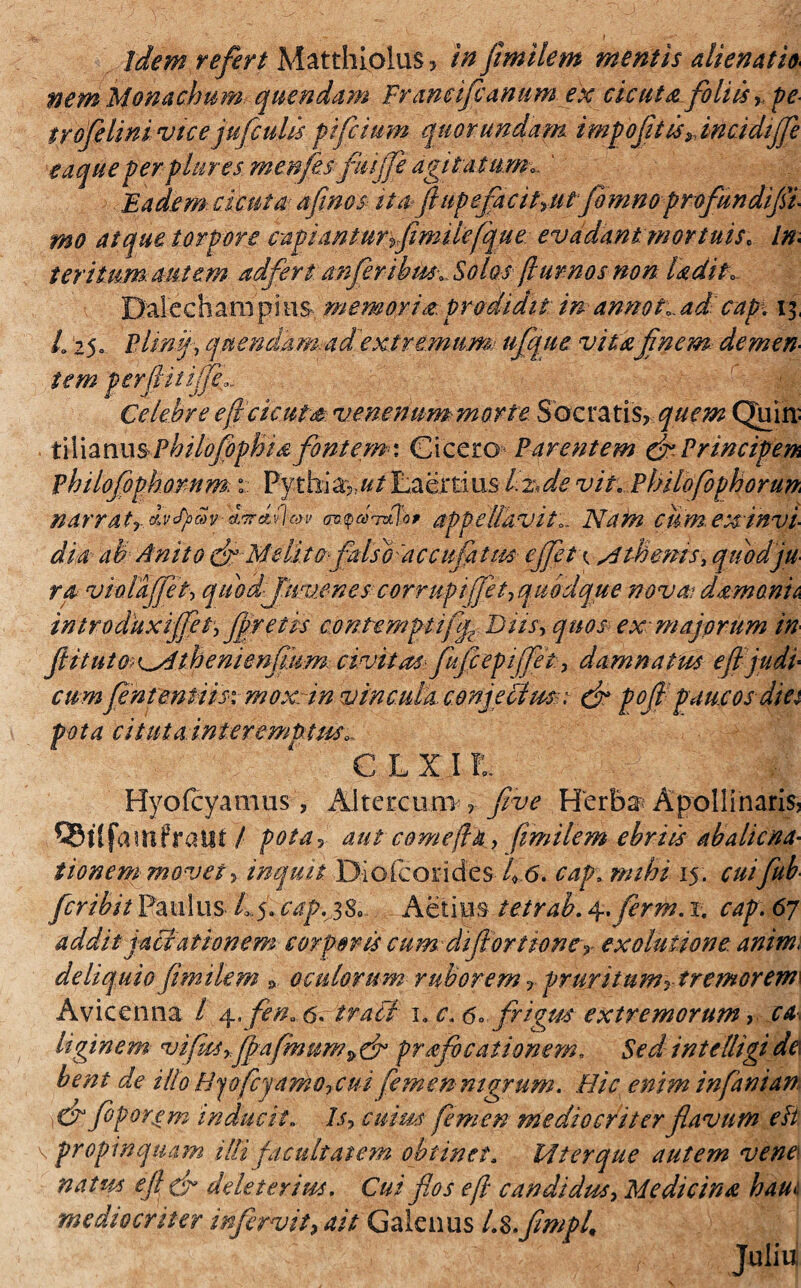 Idem refert Matthiolus, in ſimilem mentis alienatio
nem Monachum quendam Franciſcanum ex cicutæ foliis, pe-
troſelini vice juſculis piſcium quorundam impoſitis, incidiſſe
eaque per plures menſes fuiſſe agitatum.
Eadem cicuta aſinos ita ſtupefacit, ut ſomno profundiſſi-
mo atque torpore capiantur, ſimileſque evadant mortuis. In-
teritum autem adfert anſeribus. Solos ſturnos non lædit.
Dalechampius memoriæ prodidit in annot. ad cap. 13.
l. 25. Plinij, quendam ad extremum uſque vitæ finem demen-
tem perſtitiſſe.
Celebre eſt cicutæ venenum morte Socratis, quem Quin-
tilianus Philoſophiæ fontem: Cicero Parentem & Principem
Philoſophorum: Pythia, ut Laërtius l. 2. de vit. Philoſophorum
narrat, ἀνδρῶν ἁπάντων σοφώτατον appellavit. Nam cùm ex invi-
dia ab Anito & Melito falsò accuſatus eſſet Athenis, quòd ju-
ra violâſſet, quòd Juvenes corrupiſſet, quòdque nova dæmonia
introduxiſſet, ſpretis contemptiſq; Diis, quos ex majorum in-
ſtituto Athenienſium civitas ſuſcepiſſet, damnatus eſt judi-
cum ſententiis: mox in vincula conjectus: & poſt paucos dies
pota cituta interemptus.
CLXII.
Hyoſcyamus, Altercum, ſive Herba Apollinaris,
Bilſamkraut / pota, aut comeſta, ſimilem ebriis abaliena-
tionem movet, inquit Dioſcorides l. 6. cap. mihi 15. cui ſub-
ſcribit Paulus l. 5. cap. 38. Aëtius tetrab. 4. ſerm. 1. cap. 67
addit jactationem corporis cum diſtortione, exolutione animi
deliquio ſimilem, oculorum ruborem, pruritum, tremorem
Avicenna l 4. fen. 6. tract 1. c. 6. frigus extremorum, ca-
liginem viſus, ſpaſmum, & præfocationem. Sed intelligi de
bent de illo Hyoſcyamo, cui ſemen nigrum. Hic enim inſaniam
& ſoporem inducit. Is, cuius ſemen mediocriter flavum eſt
propinquam illi facultatem obtinet. Uterque autem vene
natus eſt & deleterius. Cui flos eſt candidus, Medicinæ hau
mediocriter inſervit, ait Galenus l. 8. ſimpl.
Juliu